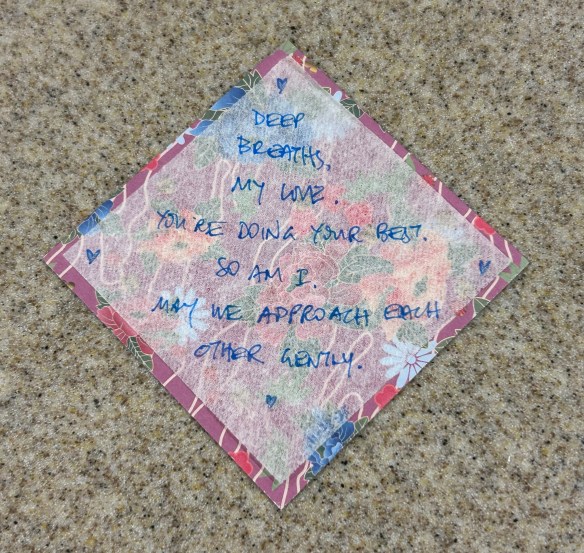 DEEP
BREATHS,
MY LOVE.
YOU'RE DOING YOUR BEST.
SO AM I.
MAY WE APPROACH EACH
OTHER GENTLY.